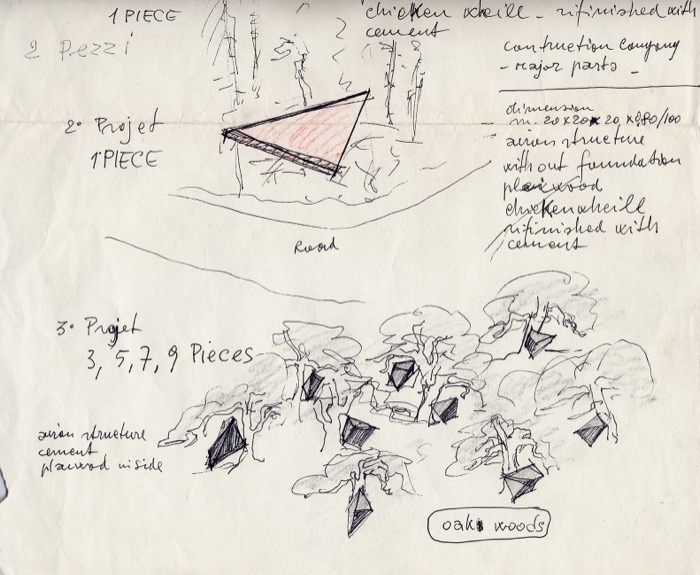 1 PIECE
chicken wheill - rifinished with
cement
2 Pezzi
contruction Company
- major parts -
2° Projet
1 PIECE
dimension
m. 20x20x20 x 0,80/100
airon structure
without foundation
plaiwood
chickenwheill
rifinished with
cement
Road
3° Projet
3, 5, 7, 9 Pieces
airon structure
cement
plaiwood inside
oak woods